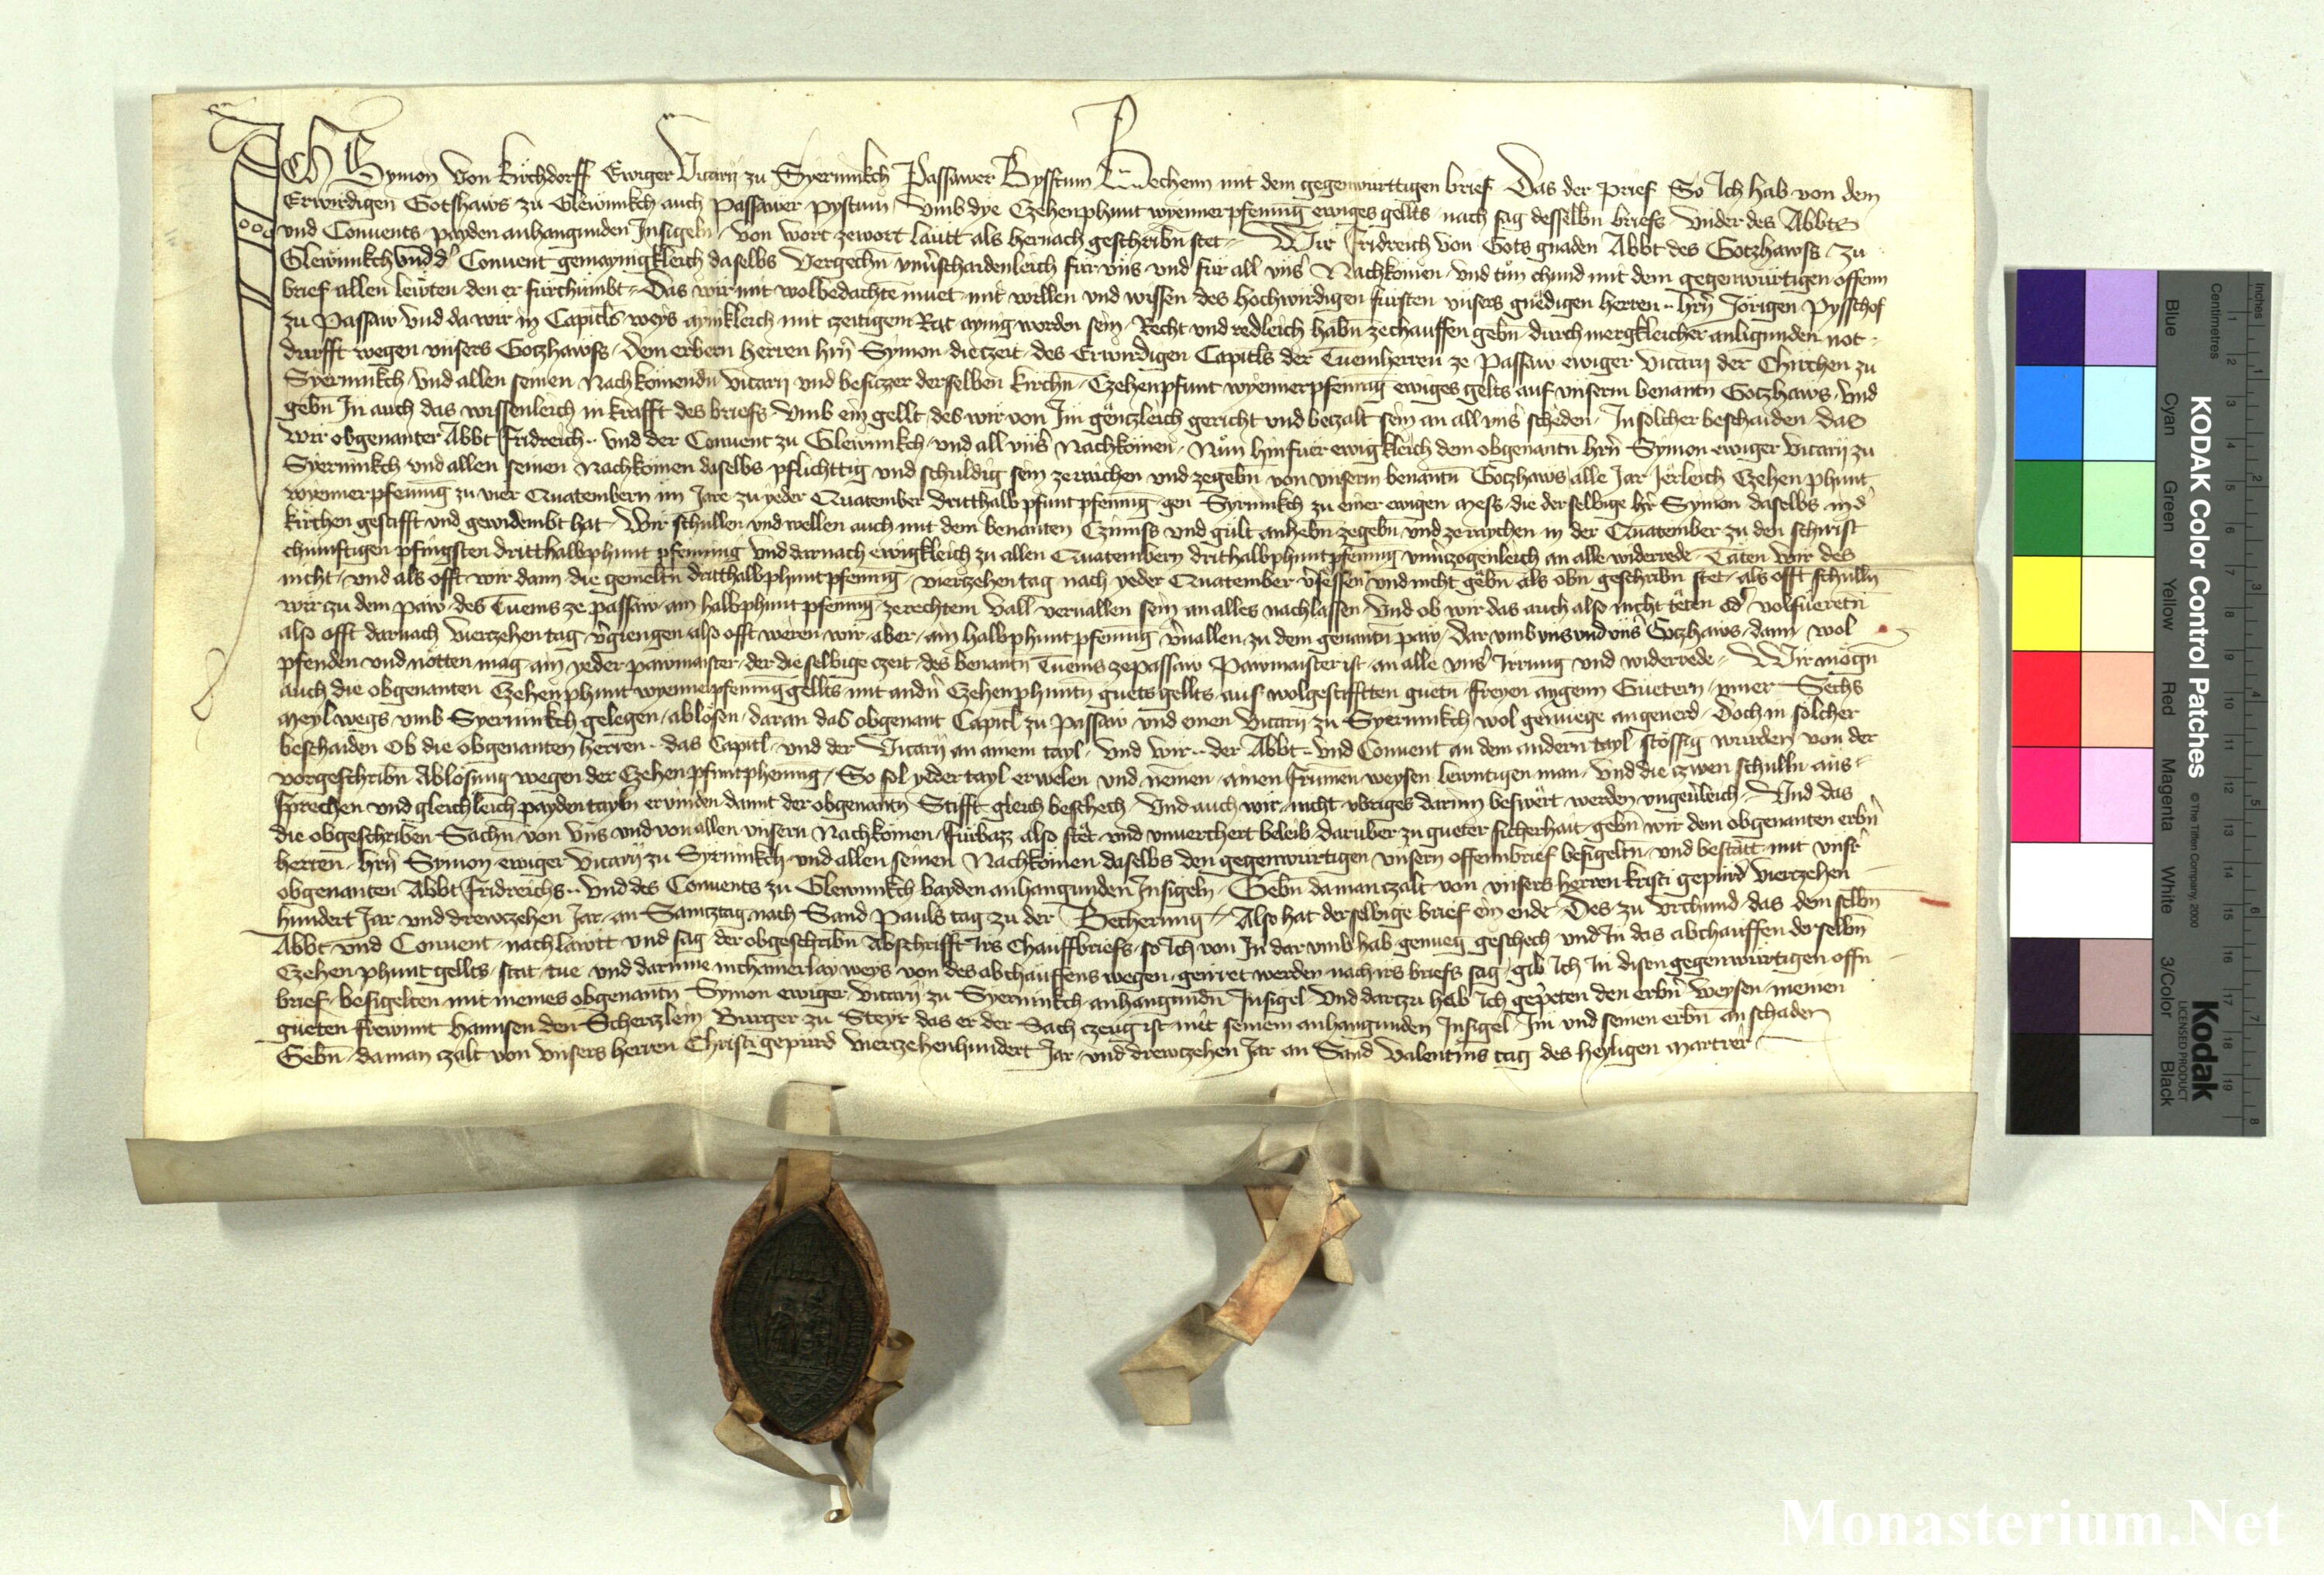 Ich Symon von Kirchdorff Ewiger Vicarij zu Syernikch Passawer Bysstum Vergechenn mit dem gegenwurttigen brief Das der prief So Ich hab von dem
Erwirdigen Gotshaws zu Glewnikch auch Passawer pystum vmb dye Czehen phunt wyenner pfennig ewiges gellts nach sag desselbn briefs Vnder des Abbts
vnd Conuents payden anhangunden Insigeln von wort zewort lautt als hernach geschribn stet Wir Fridreich von Gots gnaden Abbt des Gotzhawss zu
Glewnikch vnd d' Conuent gemaynigkleich daselbs Vergechn vnuerschaidenleich fur vns vnd fur all vns' Nachkomen vnd tun chund mit dem gegenwurtigen offenn
brief allen lewten den er furchumbt Das wir mit wolbedachtē muet mit willen vnd wissen des hochwirdigen fursten vnsers gnedigen herren hrn Jorigen Pysschof
zu Passaw vnd da wir in Capitls weys aynkleich mit zeitigem Rat aynig worden sein Recht vnd redleich habn zechauffen gebn durch mergkleicher anligunden not
durfft wegen vnsers Gotzhawss dem erbern herren hrn Symon die zeit des Erwirdigen Capitls der Tuemherren ze Passaw ewiger vicarij der Chirchen zu
Syernikch vnd allen seinen Nachkomendn vicarij vnd besiczer derselben kirchn Czehen pfunt wyenner pfennig ewiges gelts auf vnserm benantn Gotzhaws vnd
gebn In auch das wissenleich in krafft des briefs vmb ein gellt des wir von Im gentzleich gericht vnd betzalt sein an all vns' scheden In solcher beschaiden das
wir obgenanter Abbt Fridreich vnd der Conuent zu Glewnikch vnd all vns' Nachkomen Nun hinfuer ewigkleich dem obgenantn hrn Symon ewiger vicarij zu
Syernikch vnd allen seinen Nachkomen daselbs pflichttig vnd schuldig sein zeraichen vnd zegebn von vnserm benantn Gotzhaws alle Jar Jerleich Czehen phunt
wyenner pfennig zu vier Quatembern im Jare zu yeder Quatember dritthalb pfunt pfennig gen Syrnikch zu einer ewigen mess die derselbige hr Symon daselbs in d'
kirchen gestifft vnd gewidembt hat Wir schullen vnd wellen auch mit dem benanten Czinnss vnd gult anhebn zegebn vnd ze raychen in der Quatember zu den schirist
chunftigen pfingsten dritthalb phunt pfenning vnd darnach ewigkleich zu allen Quatembern drithalb phunt pfennig vnuerzogenleich an alle widerrede Täten wir des
nicht vnd als offt wir dann die gemeltn dritthalb phunt pfennig vierzehen tag nach yeder Quatember v'sessen vnd nicht gebn als obn geschribn stet als offt schulln
wir zu dem paw des Tuems ze passaw ain halb phunt pfennig ze rechtem vall veruallen sein an alles nachlassen Vnd ob wir das auch also nicht teten od' volfueretn
also offt darnach vierzehen tag v'giengen also offt weren wir aber ain halb phunt pfennig v'uallen zu dem genantn paw dar vmb vns vnd vns' Gotzhaws dann wol
pfenden vnd notten mag ain yeder pawmaister der die selbige czeit des benantn Tuems ze Passaw Pawmaister ist an alle vns' Irrung vnd widerrede Wir mogn
auch die obgenanten Czehen phunt wyenner pfennig gellts mit andn' Czehen phuntn guets gellts auf wolgestifftten guetn freyen aygenn Guetern inner Sechs
meyl wegs vmb Syernikch gelegen ablosen daran das obgenant Capitl zu Passaw vnd einen vicarij zu Syernikch wol genuege angeuerd Doch in solcher
beschaiden Ob die obgenanten herren das Capitl vnd der Vicarij an ainem tayl vnd wir der Abbt vnd Conuent an dem andern tayl stossig wurden von der
vorgeschribn Ablosung wegen der Czehen pfunt phennig So sol yeder tayl erwelen vnd nemen ainen frumen weysen lewntigen man vnd die zwen schulln aus
sprechen vnd gleichleich payden tayln ervinden damit der obgenantn Stifft gleich beschech Vnd auch wir nicht vbriges darinn beswert werden vngeuerleich Vnd das
die obgeschriben Sachn von vns vnd von allen vnsern Nachkomen furbazz also stet vnd vnuerchert beleib daruber zu gueter sicherhait gebn wir dem obgenanten erbn'
herren hrn Symon ewiger vicarij zu Syrnikch vnd allen seinen Nachkomen daselbs den gegenwurtigen vnsern offenn brief besigeltn vnd bestatt mit vnsr'
obgenanten Abbt Fridreichs vnd des Conuents zu Glewnikch bayden anhangunden Insigeln Gebn da man czalt von vnsers herren kristi gepurd vierzehen
hundert Jar vnd drewzehen Jar an Samztag nach Sand Pauls tag zu der Becherung Also hat derselbige brief ein ende Des zu vrchund das dem selbn
Abbt vnd Conuent nach lawtt vnd sag der obgeschribn Abschrifft irs Chauffbriefs so Ich von In dar vmb hab genueg geschech vnd In das abchauffen derselbn
Czehen phunt gellts stat tue vnd darinne in chainerlay weys von des abchauffens wegen geirret werden nach irs briefs sag gib Ich In disen gegenwurtigen offn
brief besigelten mit meines obgenantn Symon ewiger vicarij zu Syernikch anhangundn Insigel Vnd dartzu hab Ich gepeten den erbn' weysen meinen
gueten frewnnt Hannsen den Scherzlein Burger zu Steyr das er der Sach czeug ist mit seinem anhangunden Insigel Im vnd seinen erbn an schaden
Gebn da man czalt von vnsers herren Christi gepurd vierzehenhundert Jar vnd drewczehen Jar an Sand Valentins tag des heyligen martrer
KODAK Color Control Patches
© The Tiffen Company, 2000
Kodak
LICENSED PRODUCT
Blue
Cyan
Green
Yellow
Red
Magenta
White
3/Color
Black
Centimetres
Inches
Monasterium.Net